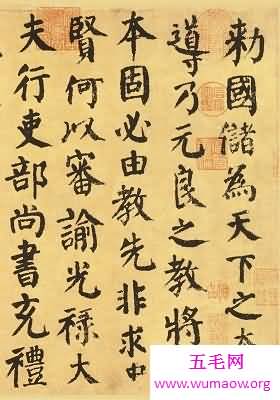 勑國儲為天下之本
導乃元良之教將
本固必由教先非求中
賢何以審諭光祿大
夫行吏部尚書充禮
五毛网
www.wumaow.org